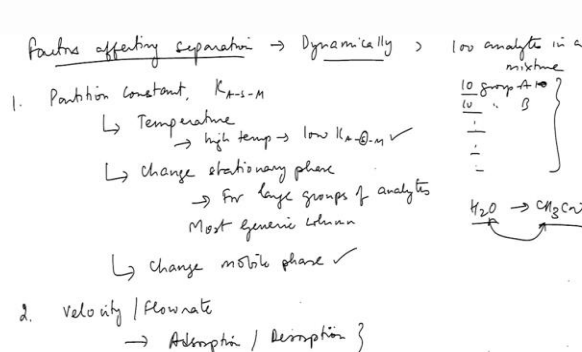 Factors affecting separation → Dynamically > 100 analytes in a
mixture
10 group A
10 " B
1. Partition Constant, K A-S-M
↳ Temperature
→ high temp → low K A-S-M ✓
↳ Change stationary phase
→ For large groups of analytes
Most Generic column
H2O → CH3CN
↳ Change mobile phase ✓
2. Velocity / Flowrate
→ Adsorption / Desorption }